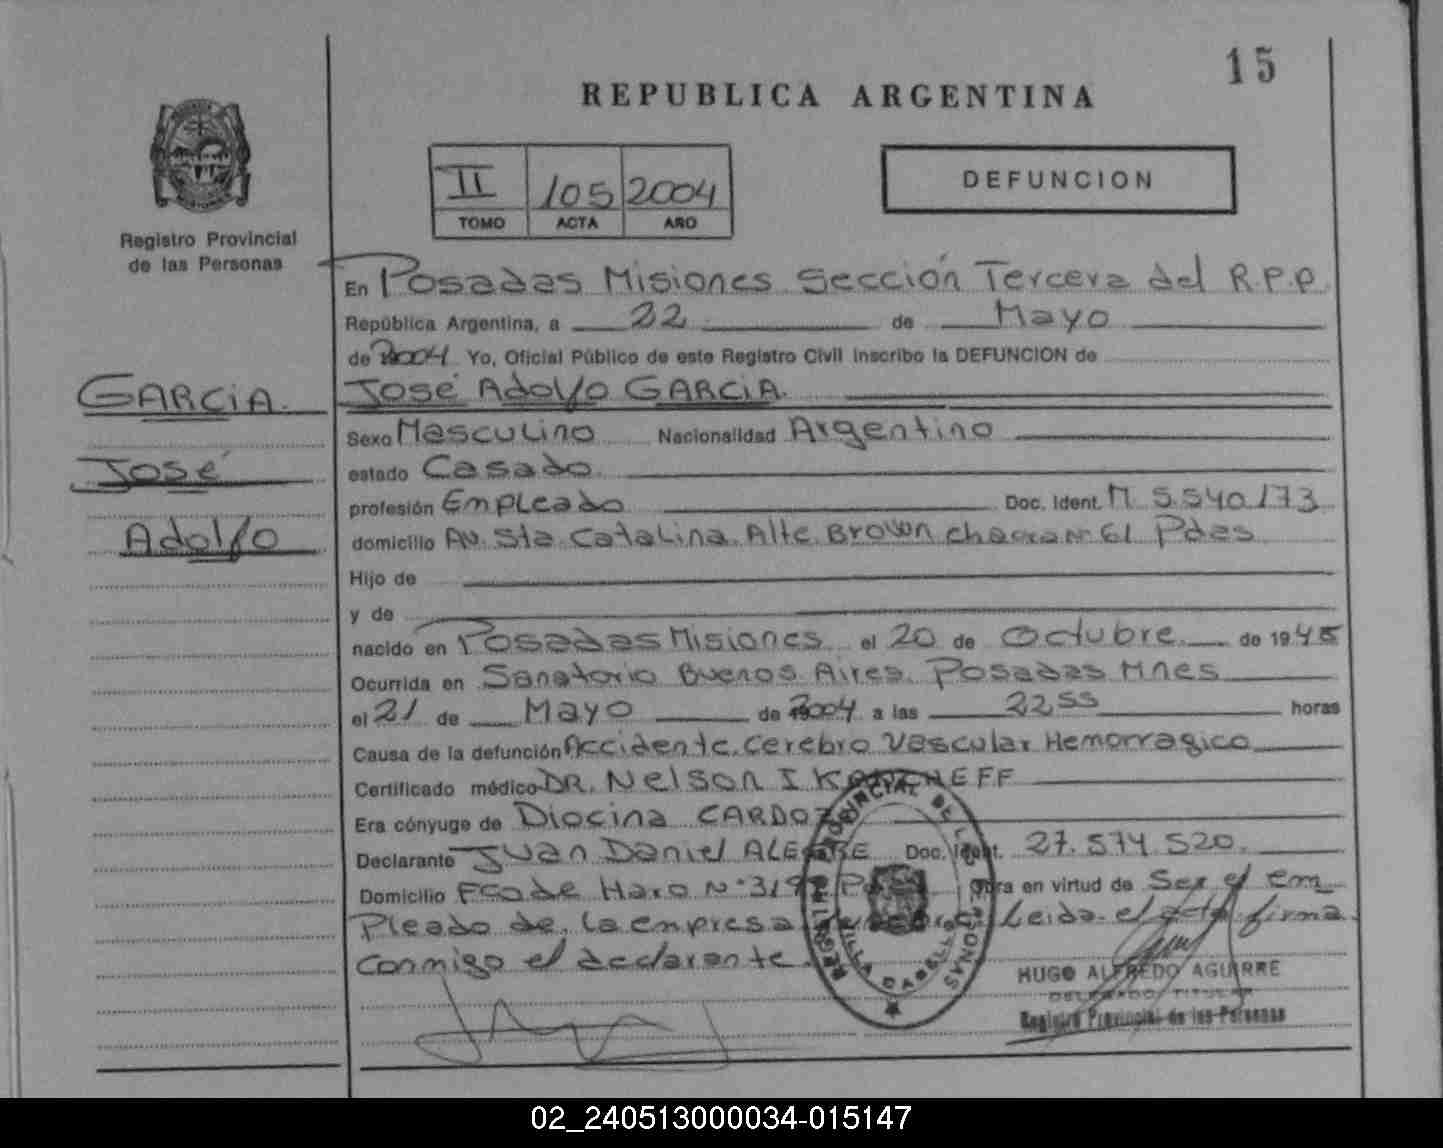 15
REPUBLICA ARGENTINA
II 105 2004
TOMO ACTA AÑO
DEFUNCION
Registro Provincial
de las Personas
GARCIA.
José
Adolfo
En Posadas Misiones Sección Tercera del R.P.P.
República Argentina, a 22 de Mayo
de 2004 Yo, Oficial Público de este Registro Civil inscribo la DEFUNCION de
José Adolfo GARCIA.
Sexo Masculino Nacionalidad Argentino
estado Casado.
profesión Empleado Doc. Ident. M 5.540.173
domicilio Av. Sta Catalina Alte Brown chacra Nº 61 Pdas
Hijo de
y de
nacido en Posadas Misiones el 20 de Octubre de 1945
Ocurrida en Sanatorio Buenos Aires. Posadas Mnes
el 21 de Mayo de 2004 a las 2255 horas
Causa de la defunción Accidente Cerebro Vascular Hemorragico
Certificado médico DR. Nelson I
Era cónyuge de Diocina CARDOZO
Declarante Juan Daniel ALEGRE Doc. Ident. 27.574.520.
Domicilio Fco de Haro Nº Obra en virtud de Ser el em
pleado de la empresa Leida el acta firma
conmigo el declarante.
REGISTRO PROVINCIAL DE LAS PERSONAS
VILLA CABELLO
HUGO ALFREDO AGUIRRE
DELEGADO TITULAR
Registro Provincial de las Personas
02_240513000034-015147